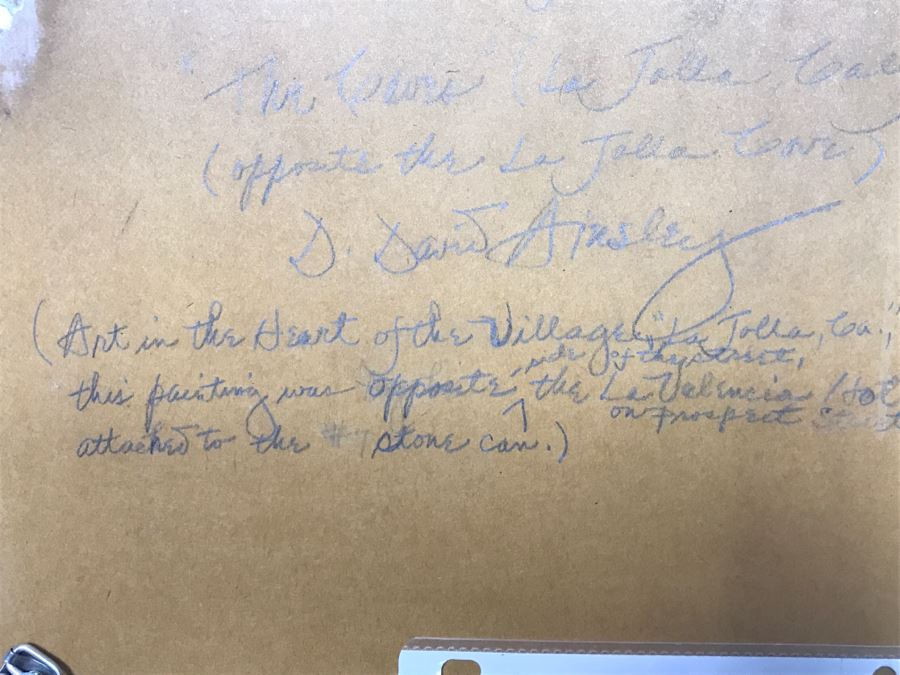 "The Caves" (La Jolla, Cal
(opposite the La Jolla Cove)
D. David Ainsley
(Art in the Heart of the Village, "La Jolla, Ca.,"
side of the street,
this painting was opposite the La Valencia Hotel
on Prospect Street
attached to the #7 stone can.)